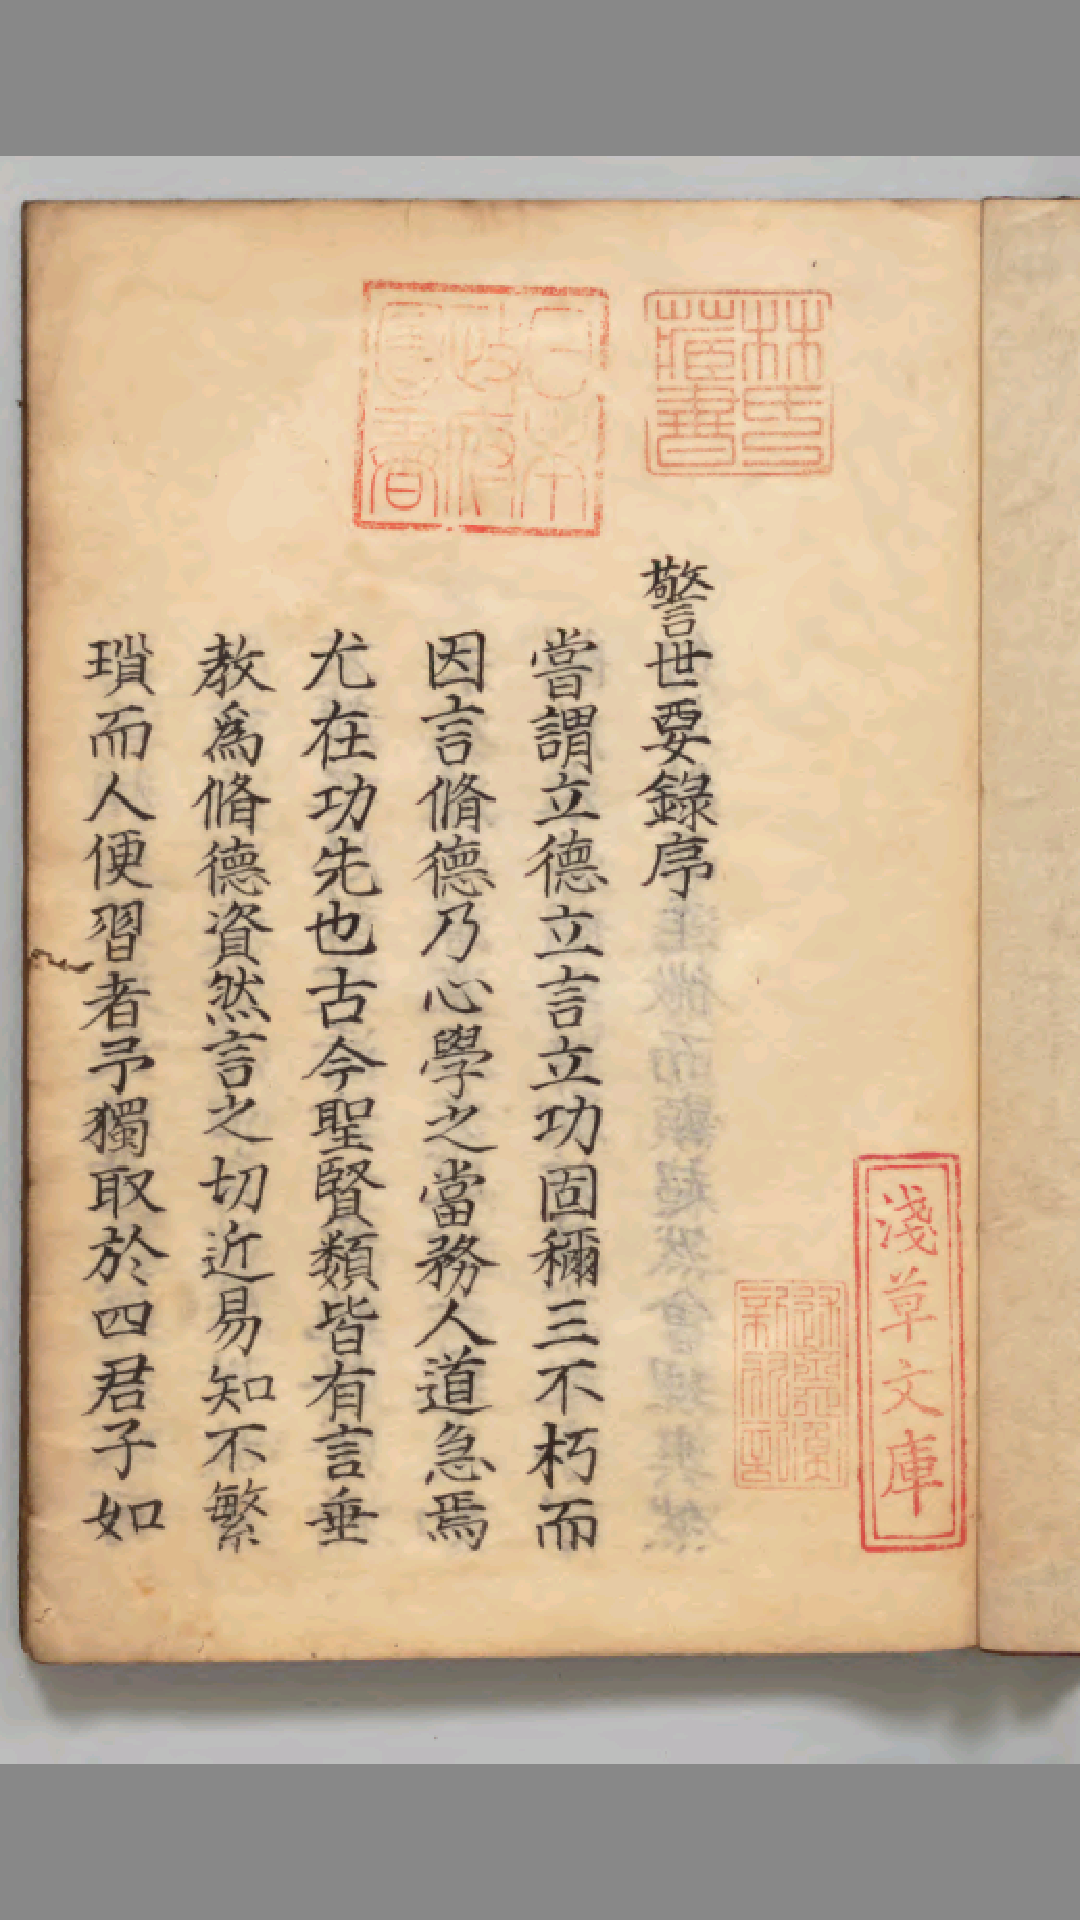 林氏藏書
日本政府圖書
淺草文庫
警世要錄序
嘗謂立德立言立功固穪三不朽而
因言脩德乃心學之當務人道急焉
尤在功先也古今聖賢類皆有言垂
教爲脩德資然言之切近易知不繁
瑣而人便習者予獨取於四君子如